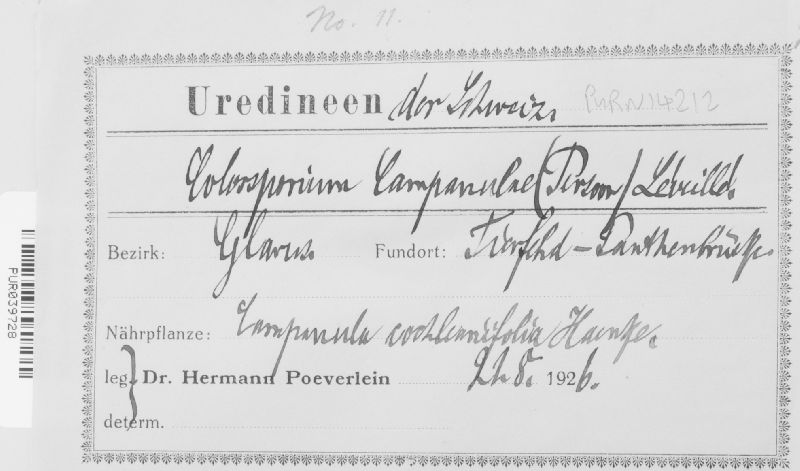 No. 11.
Uredineen der Schweiz. PURN14212
Coleosporium Campanulae (Persoon) Léveillé.
Bezirk: Glarus. Fundort: Tierfehd – Panthenbrücke.
Nährpflanze: Campanula cochleariifolia Haenke.
leg. } Dr. Hermann Poeverlein 21. 8. 1926.
determ.
PUR039728